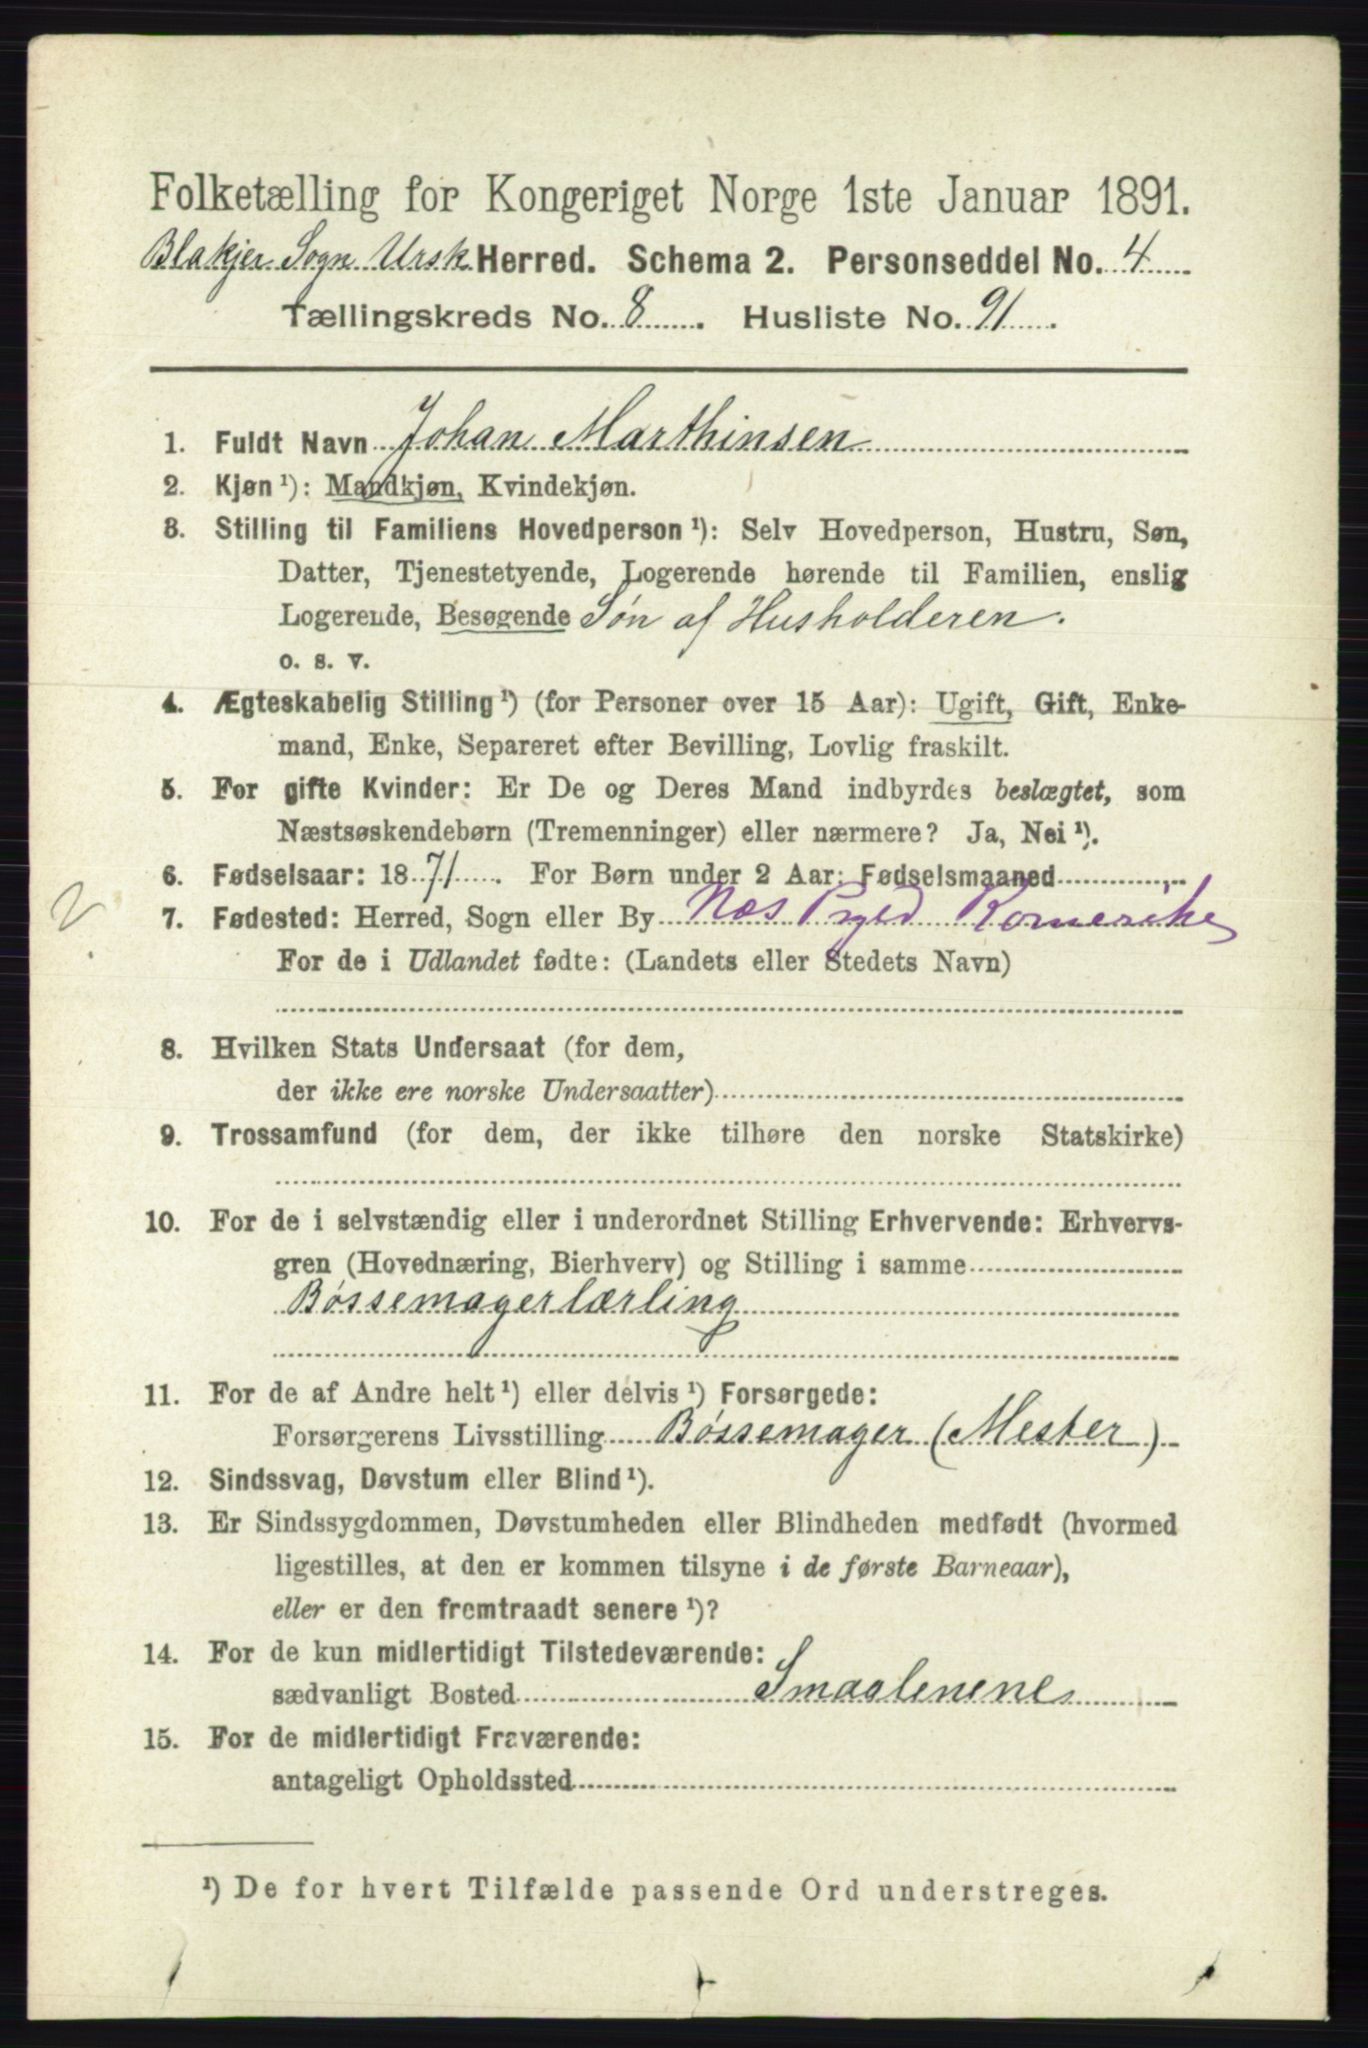 Folketælling for Kongeriget Norge 1ste Januar 1891.
Blakjer Sogn Ursk Herred. Schema 2. Personseddel No. 4
Tællingskreds No. 8. Husliste No. 91.
1. Fuldt Navn Johan Marthinsen
2. Kjøn ¹): Mandkjøn, Kvindekjøn.
3. Stilling til Familiens Hovedperson ¹): Selv Hovedperson, Hustru, Søn,
Datter, Tjenestetyende, Logerende hørende til Familien, enslig
Logerende, Besøgende Søn af Husholderen.
o. s. v.
4. Ægteskabelig Stilling ¹) (for Personer over 15 Aar): Ugift, Gift, Enke-
mand, Enke, Separeret efter Bevilling, Lovlig fraskilt.
5. For gifte Kvinder: Er De og Deres Mand indbyrdes beslægtet, som
Næstsøskendebørn (Tremenninger) eller nærmere? Ja, Nei ¹).
6. Fødselsaar: 1871. For Børn under 2 Aar: Fødselsmaaned
2. 7. Fødested: Herred, Sogn eller By Nes Pgjd
For de i Udlandet fødte: (Landets eller Stedets Navn)
8. Hvilken Stats Undersaat (for dem,
der ikke ere norske Undersaatter)
9. Trossamfund (for dem, der ikke tilhøre den norske Statskirke)
10. For de i selvstændig eller i underordnet Stilling Erhvervende: Erhvervs-
gren (Hovednæring, Bierhverv) og Stilling i samme
Bøssemagerlærling
11. For de af Andre helt ¹) eller delvis ¹) Forsørgede:
Forsørgerens Livsstilling Bøssemager (Mester)
12. Sindssvag, Døvstum eller Blind ¹).
13. Er Sindssygdommen, Døvstumheden eller Blindheden medfødt (hvormed
ligestilles, at den er kommen tilsyne i de første Barneaar),
eller er den fremtraadt senere ¹)?
14. For de kun midlertidigt Tilstedeværende:
sædvanligt Bosted Smaalenene
15. For de midlertidigt Fraværende:
antageligt Opholdssted
¹) De for hvert Tilfælde passende Ord understreges.